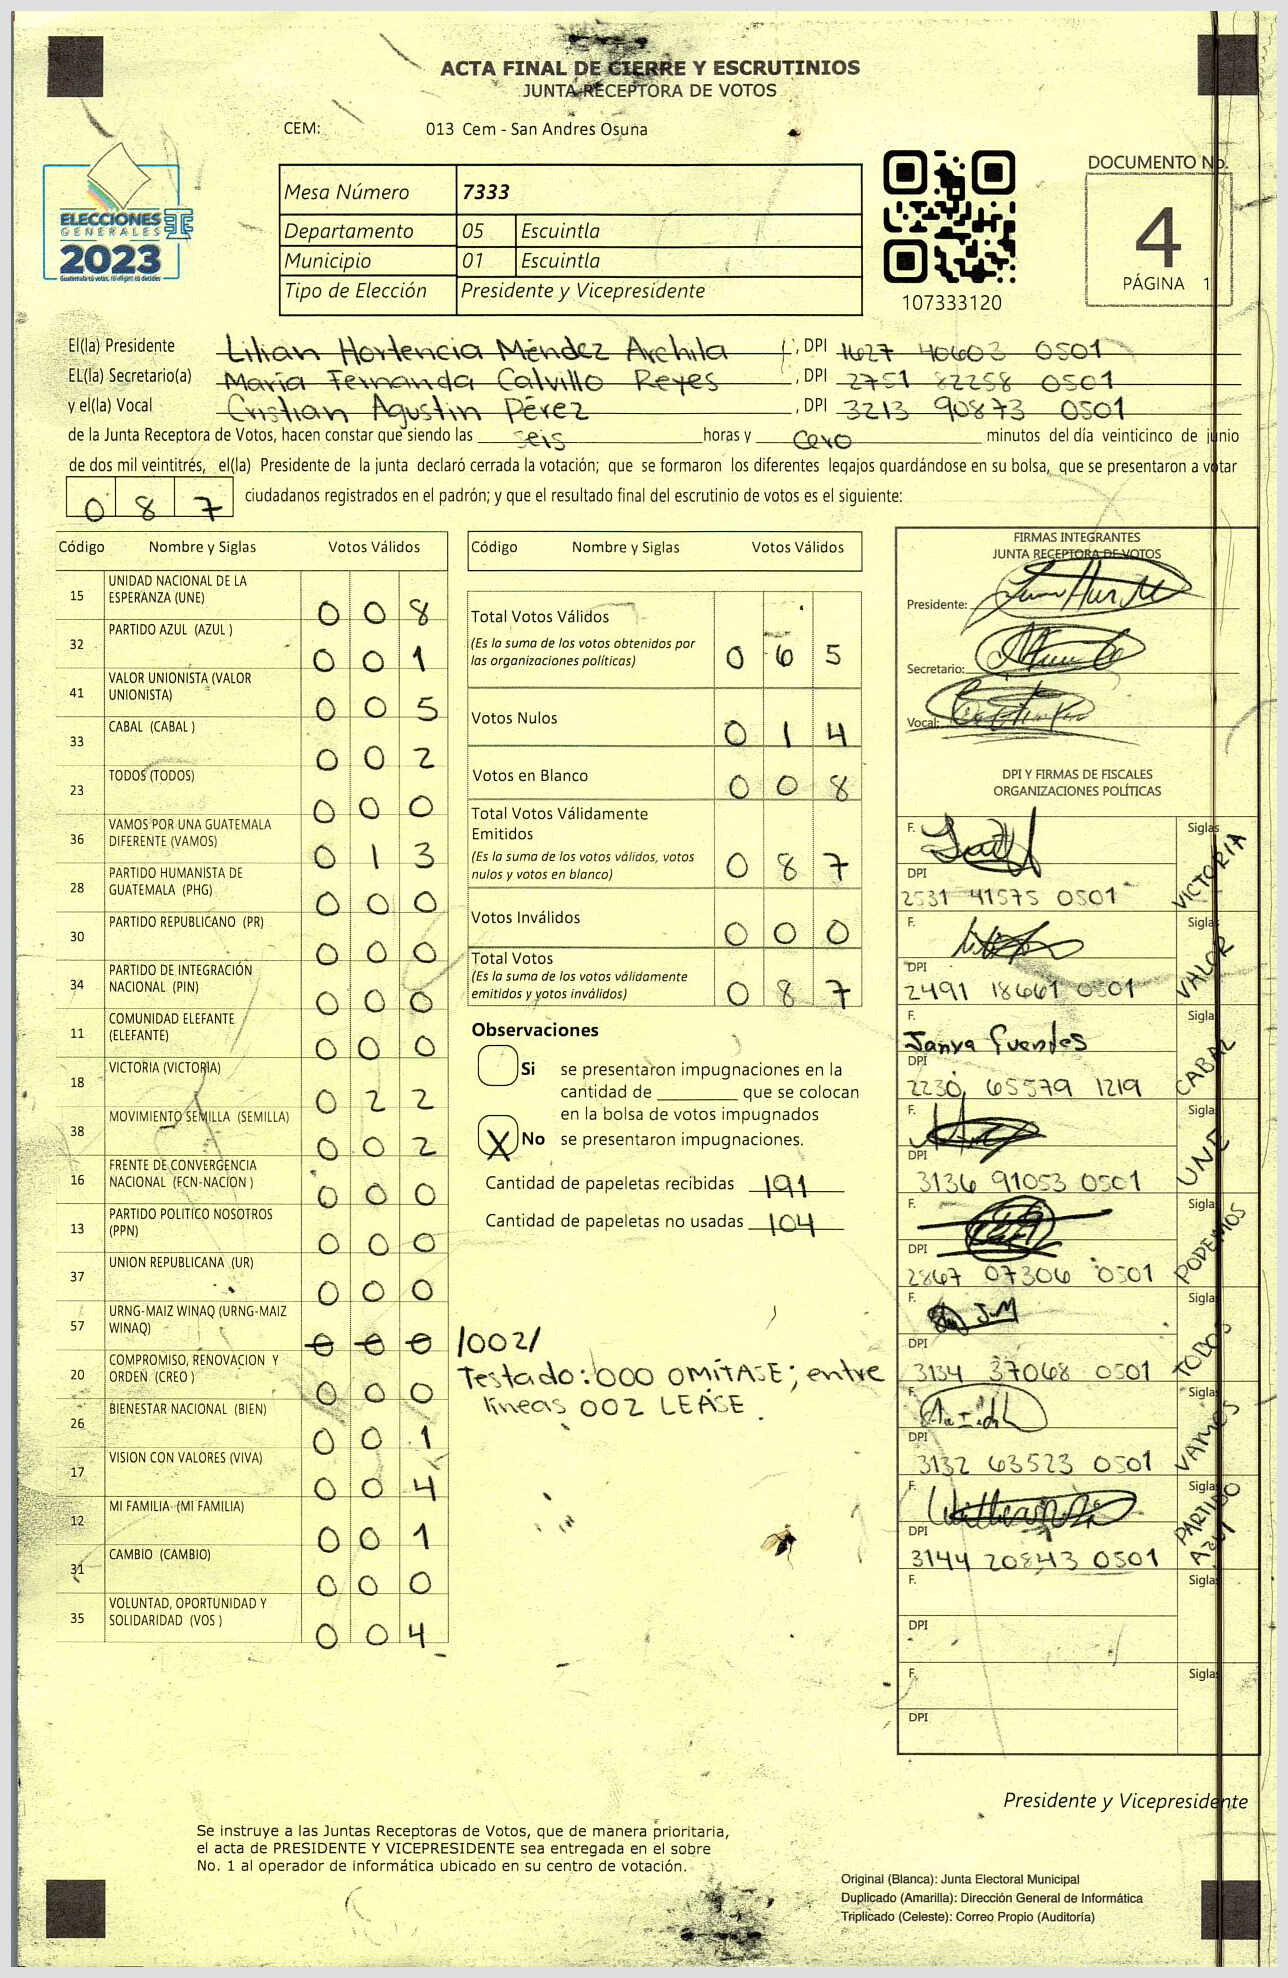 ACTA FINAL DE CIERRE Y ESCRUTINIOS
JUNTA RECEPTORA DE VOTOS
CEM: 013 Cem - San Andres Osuna
ELECCIONES
GENERALES
2023
Mesa Número 7333
Departamento 05 Escuintla
Municipio 01 Escuintla
Tipo de Elección Presidente y Vicepresidente
107333120
DOCUMENTO No.
4
PÁGINA 1
El(la) Presidente Lilian Hortencia Méndez Archila, DPI 1627 40603 0501
EL(la) Secretario(a) María Fernanda Calvillo Reyes, DPI 2751 82258 0501
y el(la) Vocal Cristian Agustin Pérez, DPI 3213 90873 0501
de la Junta Receptora de Votos, hacen constar que siendo las seis horas y cero minutos del día veinticinco de junio
de dos mil veintitrés, el(la) Presidente de la junta declaró cerrada la votación; que se formaron los diferentes legajos guardándose en su bolsa, que se presentaron a votar
087 ciudadanos registrados en el padrón; y que el resultado final del escrutinio de votos es el siguiente:
Código Nombre y Siglas Votos Válidos
15 UNIDAD NACIONAL DE LA ESPERANZA (UNE) 0 0 8
32 PARTIDO AZUL (AZUL ) 0 0 1
41 VALOR UNIONISTA (VALOR UNIONISTA) 0 0 5
33 CABAL (CABAL ) 0 0 2
23 TODOS (TODOS) 0 0 0
36 VAMOS POR UNA GUATEMALA DIFERENTE (VAMOS) 0 1 3
28 PARTIDO HUMANISTA DE GUATEMALA (PHG) 0 0 0
30 PARTIDO REPUBLICANO (PR) 0 0 0
34 PARTIDO DE INTEGRACIÓN NACIONAL (PIN) 0 0 0
11 COMUNIDAD ELEFANTE (ELEFANTE) 0 0 0
18 VICTORIA (VICTORIA) 0 2 2
38 MOVIMIENTO SEMILLA (SEMILLA) 0 0 2
16 FRENTE DE CONVERGENCIA NACIONAL (FCN-NACION ) 0 0 0
13 PARTIDO POLITICO NOSOTROS (PPN) 0 0 0
37 UNION REPUBLICANA (UR) 0 0 0
57 URNG-MAIZ WINAQ (URNG-MAIZ WINAQ) 0 0 0 /002/
20 COMPROMISO, RENOVACION Y ORDEN (CREO ) 0 0 0
26 BIENESTAR NACIONAL (BIEN) 0 0 1
17 VISION CON VALORES (VIVA) 0 0 4
12 MI FAMILIA (MI FAMILIA) 0 0 1
31 CAMBIO (CAMBIO) 0 0 0
35 VOLUNTAD, OPORTUNIDAD Y SOLIDARIDAD (VOS ) 0 0 4
Código Nombre y Siglas Votos Válidos
Total Votos Válidos
(Es la suma de los votos obtenidos por
las organizaciones políticas) 0 6 5
Votos Nulos 0 1 4
Votos en Blanco 0 0 8
Total Votos Válidamente
Emitidos
(Es la suma de los votos válidos, votos
nulos y votos en blanco) 0 8 7
Votos Inválidos 0 0 0
Total Votos
(Es la suma de los votos válidamente
emitidos y votos inválidos) 0 8 7
Observaciones
Si se presentaron impugnaciones en la
cantidad de ________ que se colocan
en la bolsa de votos impugnados
X No se presentaron impugnaciones.
Cantidad de papeletas recibidas 191
Cantidad de papeletas no usadas 104
Testado: 000 OMITASE; entre
lineas 002 LEASE.
FIRMAS INTEGRANTES
JUNTA RECEPTORA DE VOTOS
Presidente:
Secretario:
Vocal:
DPI Y FIRMAS DE FISCALES
ORGANIZACIONES POLÍTICAS
F. Siglas VICTORIA
DPI
2531 41575 0501
F. Siglas VALOR
DPI
2491 18661 0501
F. Janya Fuentes Siglas CABAL
DPI
2230 65579 1219
F. Siglas UNE
DPI
3136 91053 0501
F. Siglas PODEMOS
DPI
2867 07306 0501
F. Siglas TODOS
DPI
3134 37068 0501
F. Siglas VAMOS
DPI
3132 63523 0501
F. Siglas PARTIDO AZUL
DPI
3144 20843 0501
F. Siglas
DPI
F. Siglas
DPI
Presidente y Vicepresidente
Se instruye a las Juntas Receptoras de Votos, que de manera prioritaria,
el acta de PRESIDENTE Y VICEPRESIDENTE sea entregada en el sobre
No. 1 al operador de informática ubicado en su centro de votación.
Original (Blanca): Junta Electoral Municipal
Duplicado (Amarilla): Dirección General de Informática
Triplicado (Celeste): Correo Propio (Auditoría)